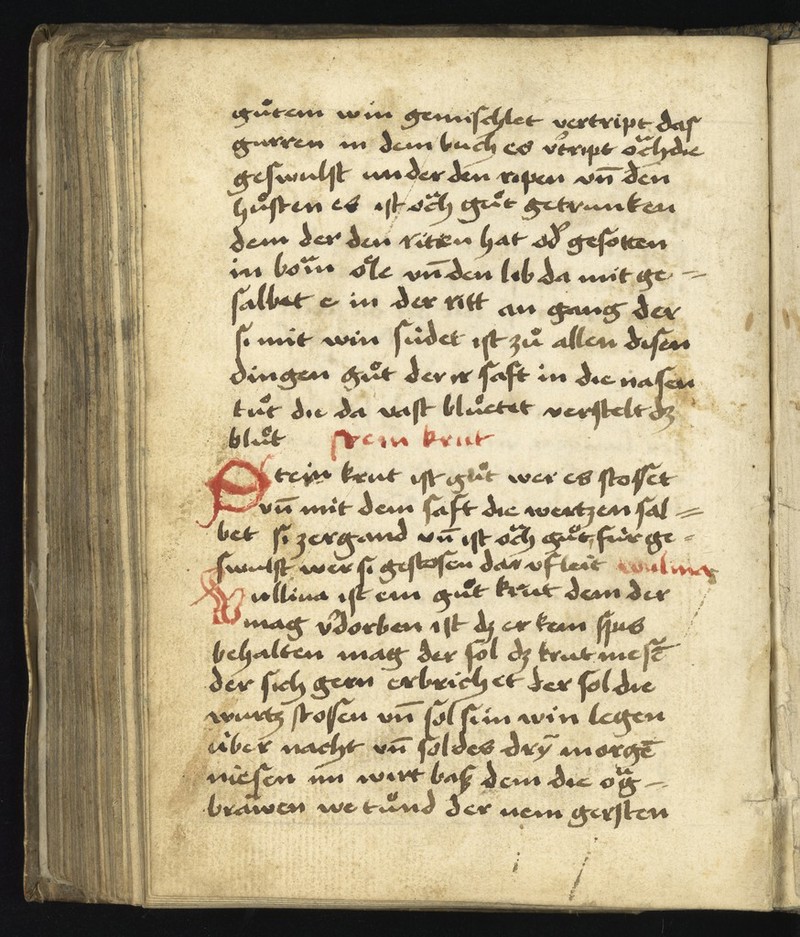 gůtem win gemischlet vertript das
gurren in dem buch es v̾tript oͮch die
geswulst under den ripen vn̄ den
hůsten es ist oͮch gůt getrunken
dem der den ritten hat od̾ gesotten
in bom öle vn̄ den lib da mit ge=
salbet e in der ritt an gang der
si mit win südet ist zů allen disen
dingen gůt der ir saft in die nasen
tůt die da vast blůetet verstelt dz
blůt stein krut
Stein krut ist gůt wer es stosset
vn̄ mit dem saft die wertzen sal=
bet si zergand vn̄ ist oͮch gůt für ge=
swulst wer si gestosen dar uf leit wulina
Wullina ist ein gůt krut dem der
mag v̾dorben ist dz er kein spis
behalten mag der sol dz krut niesē
der sich gern erbrichet der sol die
wurtz stossen vn̄ sol si in win legen
über nacht vn̄ sol des dry morgē
niesen im wirt bas dem die oͮg=
brawen we tůnd der nem gersten